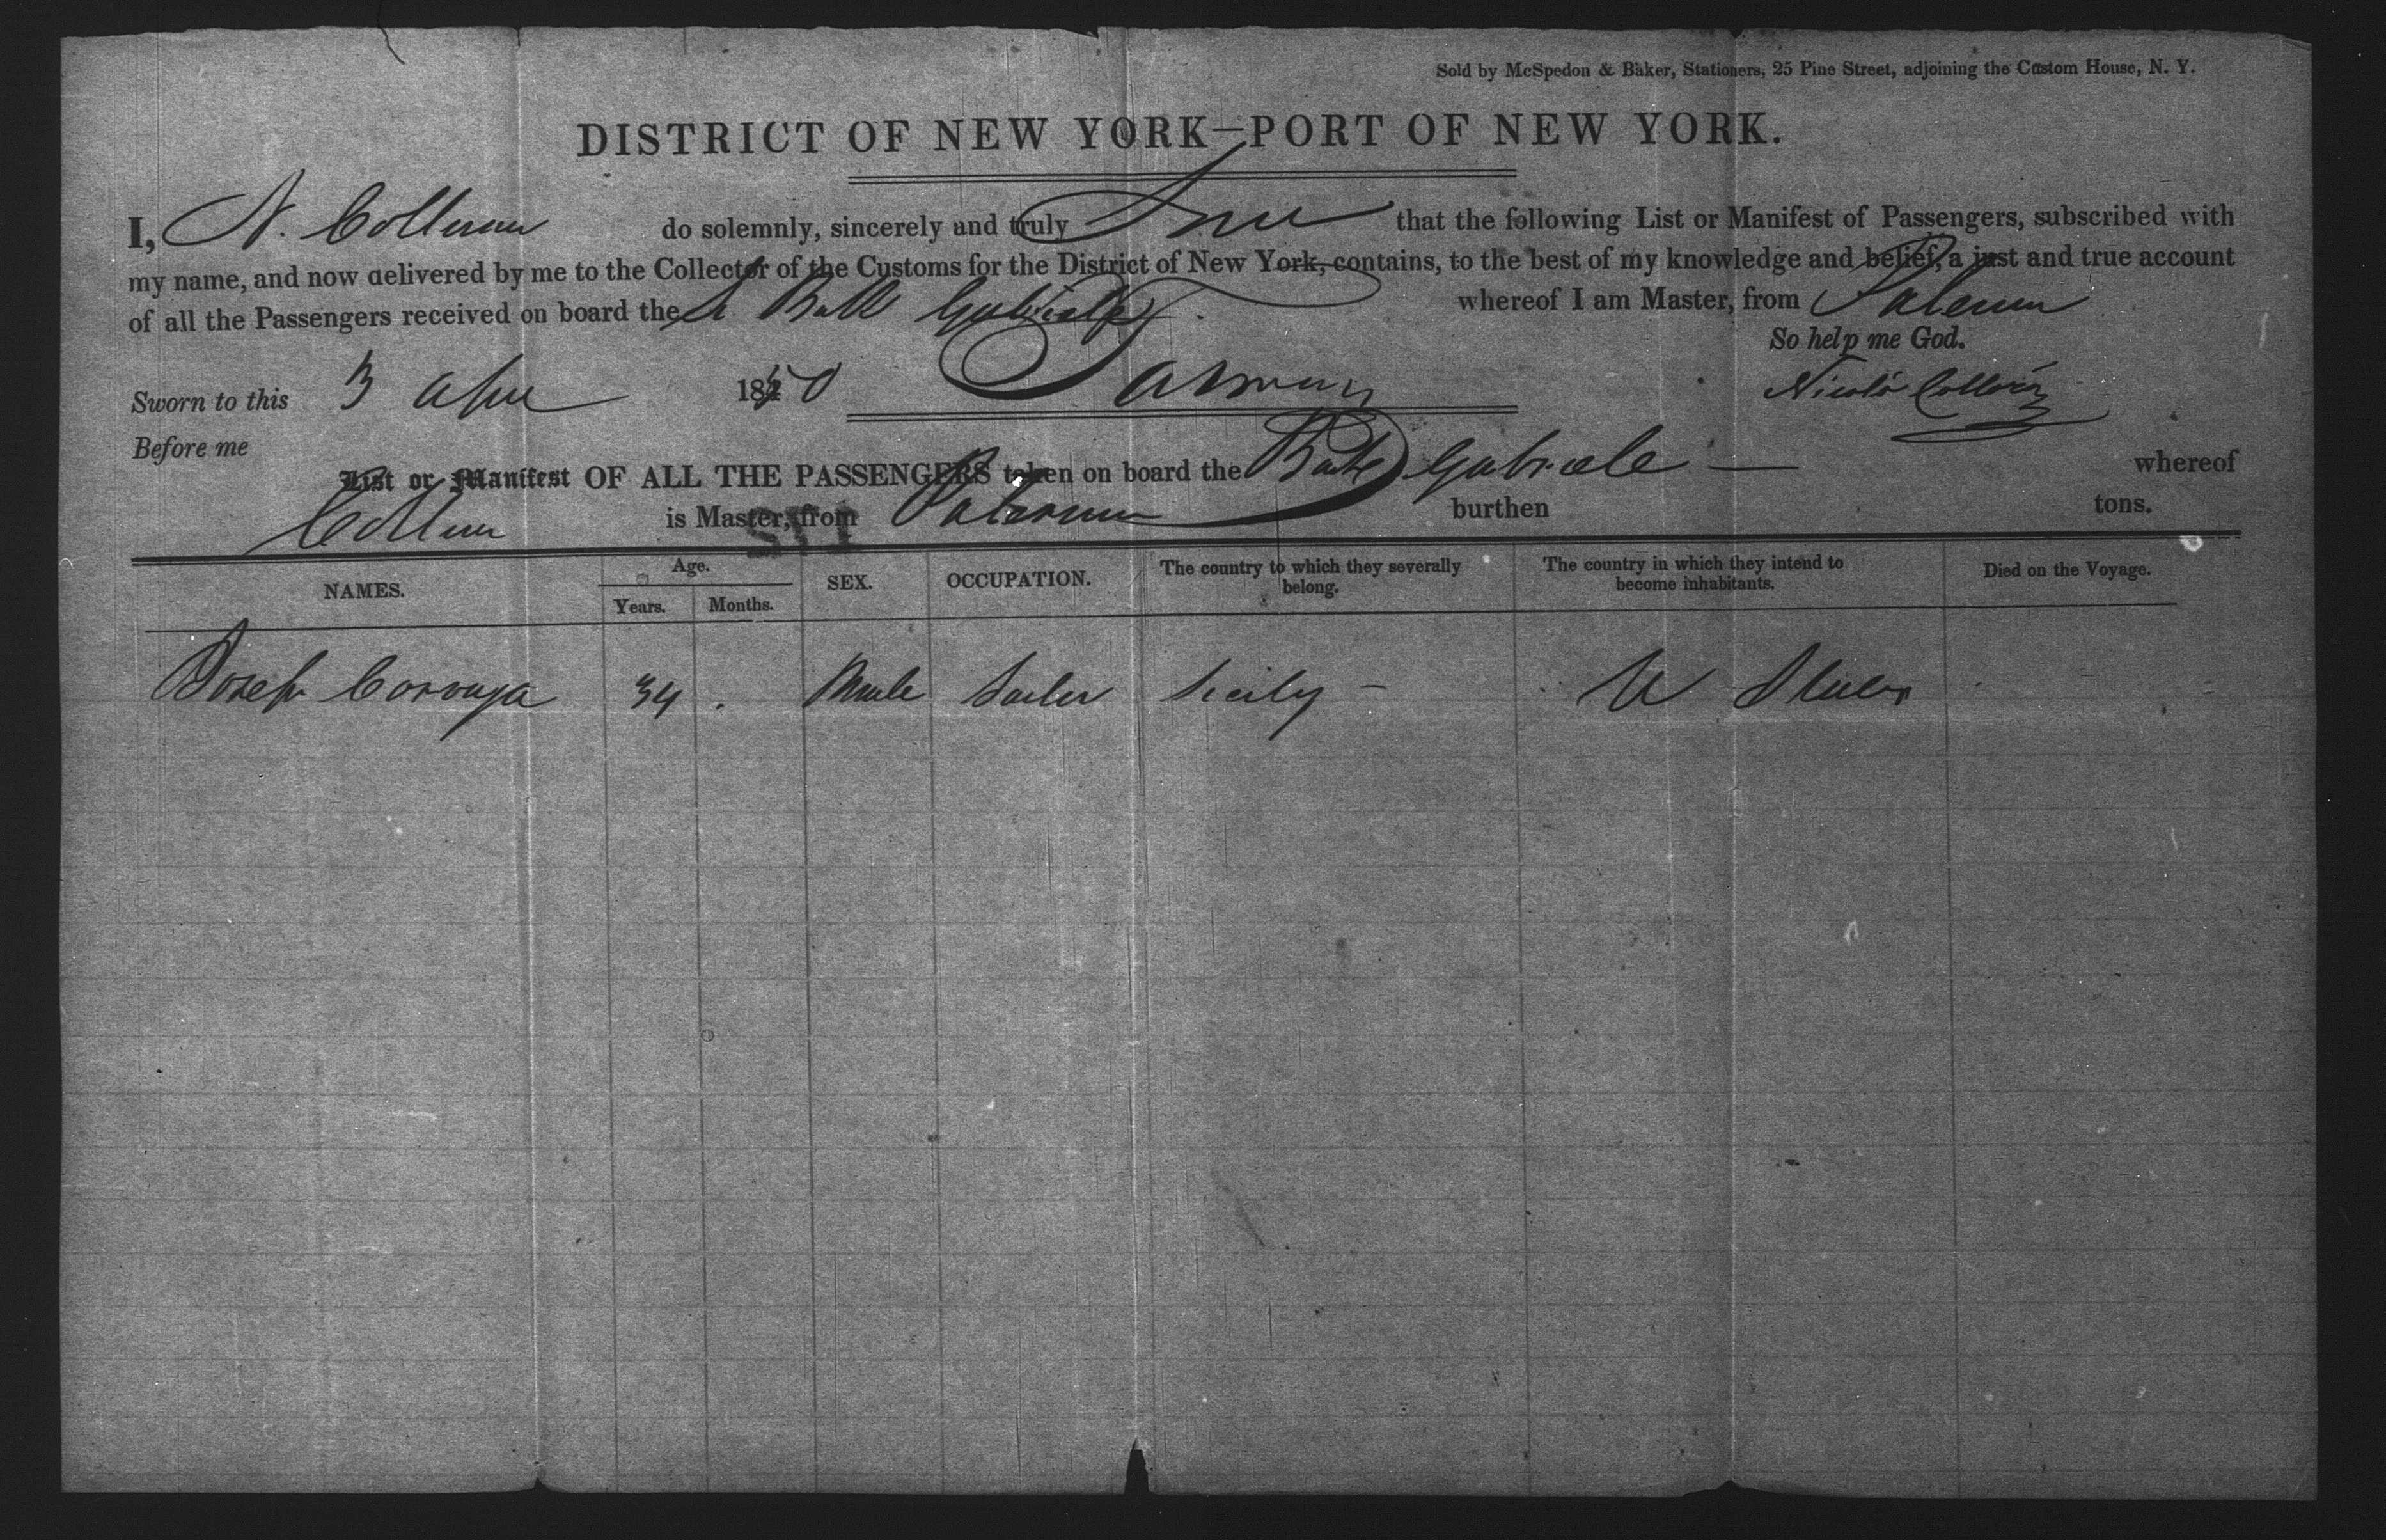 Sold by McSpedon & Baker, Stationers, 25 Pine Street, adjoining the Custom House, N. Y.
DISTRICT OF NEW YORK—PORT OF NEW YORK.
I, N. do solemnly, sincerely and truly that the following List or Manifest of Passengers, subscribed with
my name, and now delivered by me to the Collector of the Customs for the District of New York, contains, to the best of my knowledge and belief, a just and true account
of all the Passengers received on board the Gabriele whereof I am Master, from Palermo
So help me God.
Sworn to this 3 1850
Nicolò
Before me
List or Manifest OF ALL THE PASSENGERS taken on board the Gabriele — whereof
is Master, from Palermo burthen tons.
NAMES. Age. Years. Months. SEX. OCCUPATION. The country to which they severally belong. The country in which they intend to become inhabitants. Died on the Voyage.
Joseph 34 Male Sailor Sicily — U States